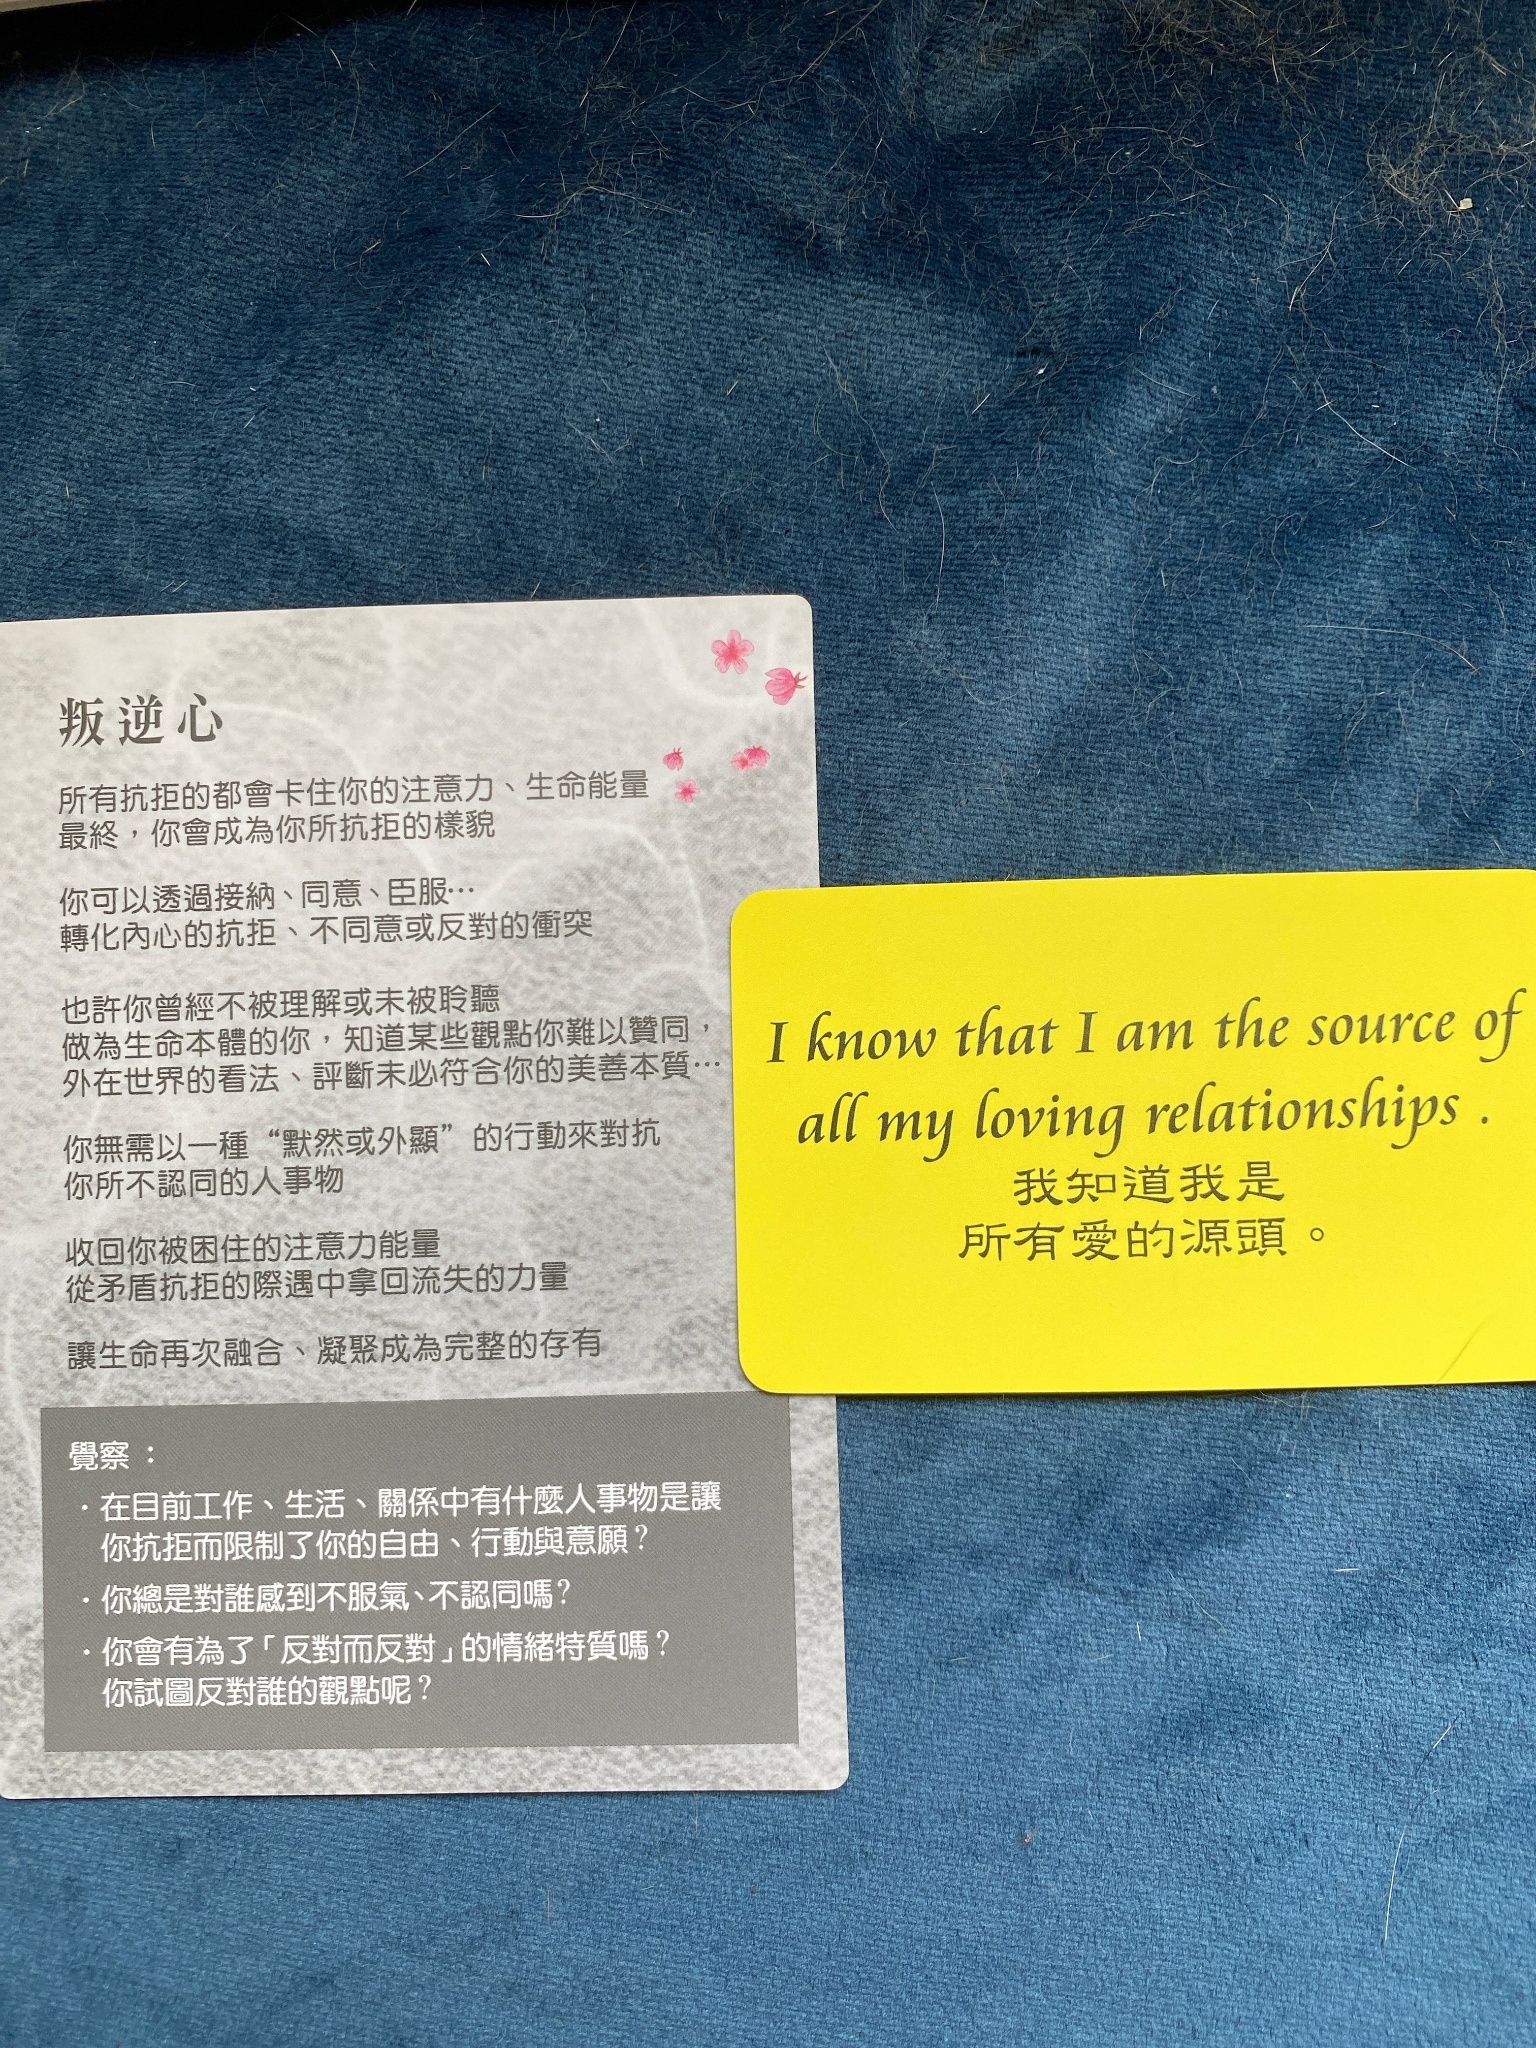 叛逆心
所有抗拒的都會卡住你的注意力、生命能量
最終，你會成為你所抗拒的樣貌
你可以透過接納、同意、臣服…
轉化內心的抗拒、不同意或反對的衝突
也許你曾經不被理解或未被聆聽
做為生命本體的你，知道某些觀點你難以贊同，
外在世界的看法、評斷未必符合你的美善本質…
你無需以一種“默然或外顯”的行動來對抗
你所不認同的人事物
收回你被困住的注意力能量
從矛盾抗拒的際遇中拿回流失的力量
讓生命再次融合、凝聚成為完整的存有
覺察：
·在目前工作、生活、關係中有什麼人事物是讓
你抗拒而限制了你的自由、行動與意願？
·你總是對誰感到不服氣、不認同嗎？
·你會有為了「反對而反對」的情緒特質嗎？
你試圖反對誰的觀點呢？
I know that I am the source of
all my loving relationships .
我知道我是
所有愛的源頭。